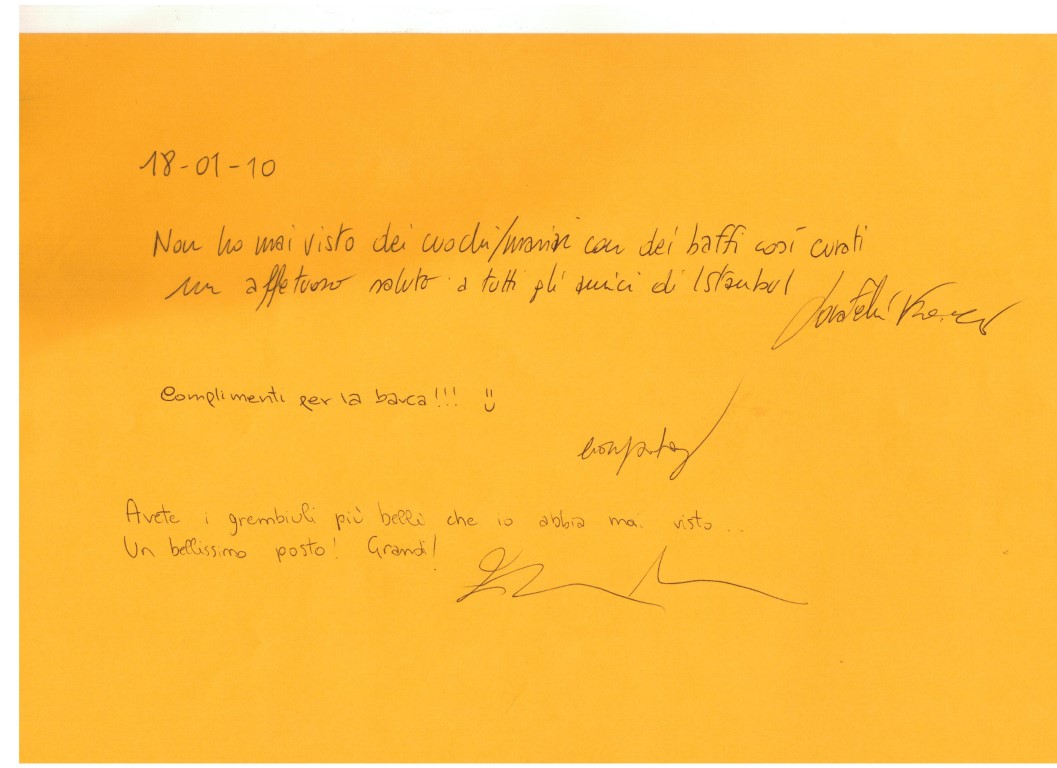 18-01-10
Non ho mai visto dei cuochi/marinai con dei baffi così curati
un affetuoso saluto a tutti gli amici di Istanbul
Complimenti per la barca!!! :)
Avete i grembiuli più belli che io abbia mai visto..
Un bellissimo posto! Grandi!